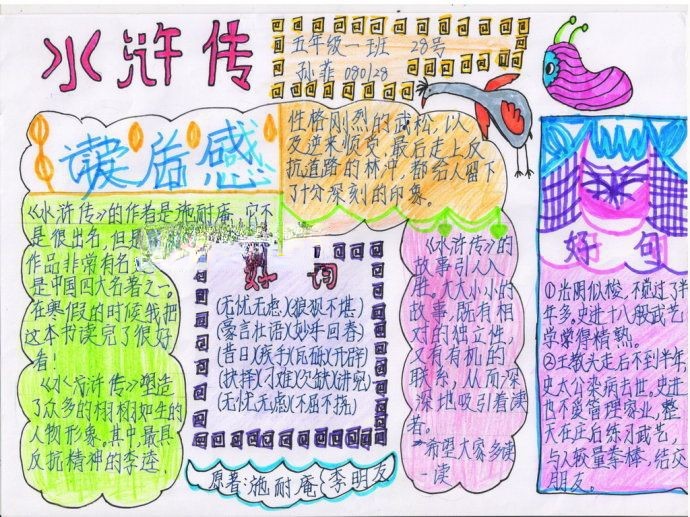 水浒传
五年级一班 28号
孙菲 080128
读后感
《水浒传》的作者是施耐庵,它不
是很出名,但是
作品非常有名,
是中国四大名著之一。
在寒假的时候我把
这本书读完了很好
看!
《水浒传》塑造
了众多的栩栩如生的
人物形象。其中,最具
反抗精神的李逵,
性格刚烈的武松,以
及逆来顺受 最后走上反
抗道路的林冲,都给人留下
了十分深刻的印象。
好词
(无忧无虑)(狼狈不堪)
(豪言壮语)(妙手回春)
(昔日)(疾手)(瓦砾)(开辟)
(扶择)(刁难)(欠缺)(讲究)
(无忧无虑)(不屈不挠)
原著:施耐庵 李明友
《水浒传》的
故事引人入
胜。大大小小的
故事,既有相
对的独立性,
又有有机的
联系,从而深
深地吸引着读
者。
希望大家多读
一读
好句
①光阴似梭,不觉过了半
年多,史进十八般武艺
学掌得精熟。
②王教头走后不到半年,
史太公染病去世。史进
也不爱管理家业,整
天在庄后练习武艺,
与人较量拳棒,结交
朋友。